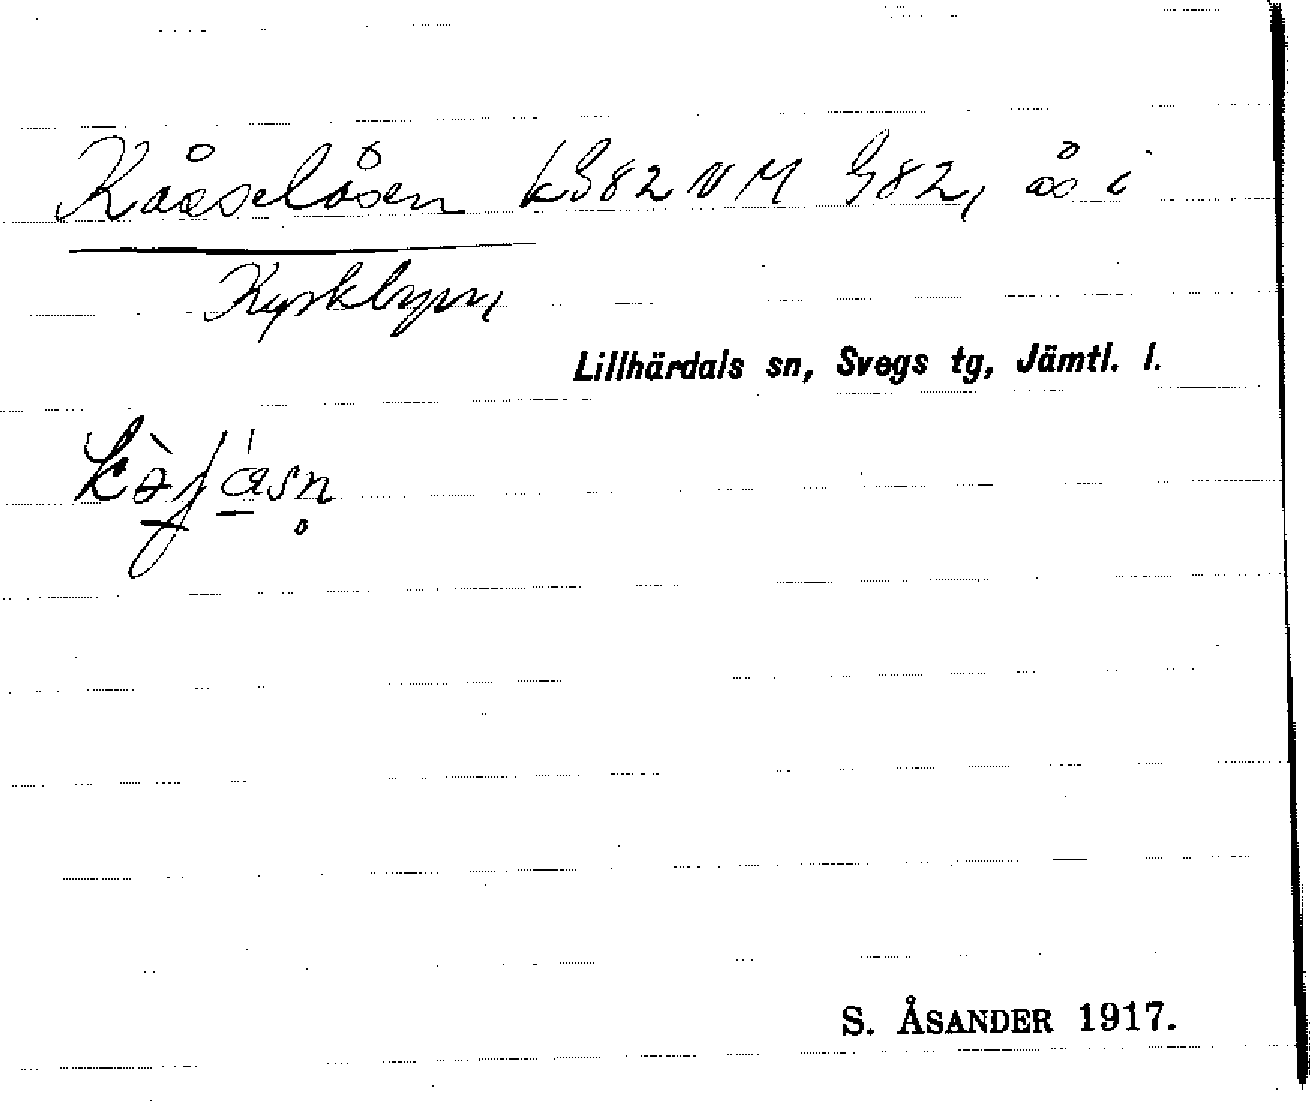 Kååselåsen k382 NM 382, ås i
Kyrkbyn,
Lillhärdals sn, Svegs tg, Jämtl. l.
S. ÅSANDER 1917.